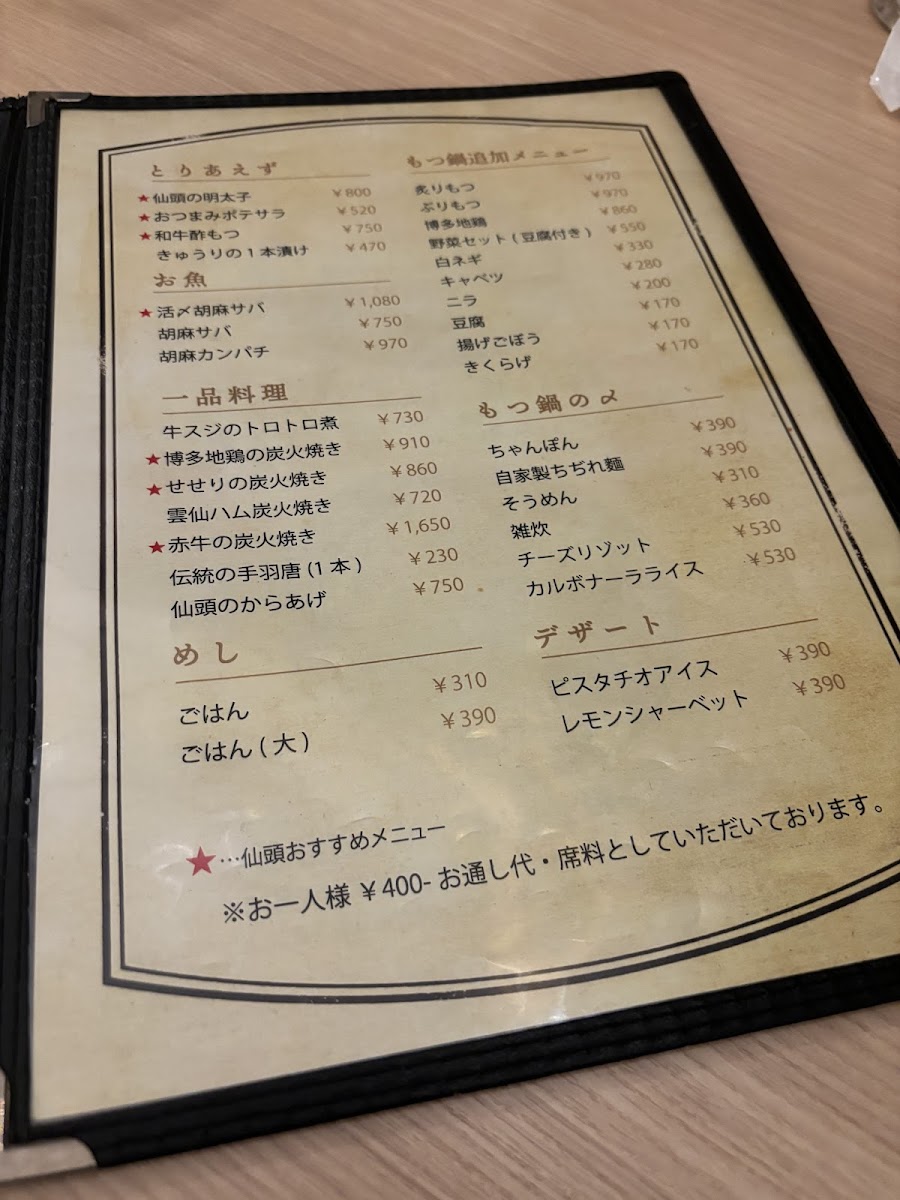 とりあえず
★仙頭の明太子 ¥800
★おつまみポテサラ ¥520
★和牛酢もつ ¥750
きゅうりの1本漬け ¥470
お魚
★活〆胡麻サバ ¥1,080
胡麻サバ ¥750
胡麻カンパチ ¥970
一品料理
牛スジのトロトロ煮 ¥730
★博多地鶏の炭火焼き ¥910
★せせりの炭火焼き ¥860
雲仙ハム炭火焼き ¥720
★赤牛の炭火焼き ¥1,650
伝統の手羽唐(1本) ¥230
仙頭のからあげ ¥750
めし
ごはん ¥310
ごはん(大) ¥390
もつ鍋追加メニュー
炙りもつ ¥970
ぷりもつ ¥970
博多地鶏 ¥860
野菜セット(豆腐付き) ¥550
白ネギ ¥330
キャベツ ¥280
ニラ ¥200
豆腐 ¥170
揚げごぼう ¥170
きくらげ ¥170
もつ鍋の〆
ちゃんぽん ¥390
自家製ちぢれ麺 ¥390
そうめん ¥310
雑炊 ¥360
チーズリゾット ¥530
カルボナーラライス ¥530
デザート
ピスタチオアイス ¥390
レモンシャーベット ¥390
★…仙頭おすすめメニュー
※お一人様 ¥400-お通し代・席料としていただいております。